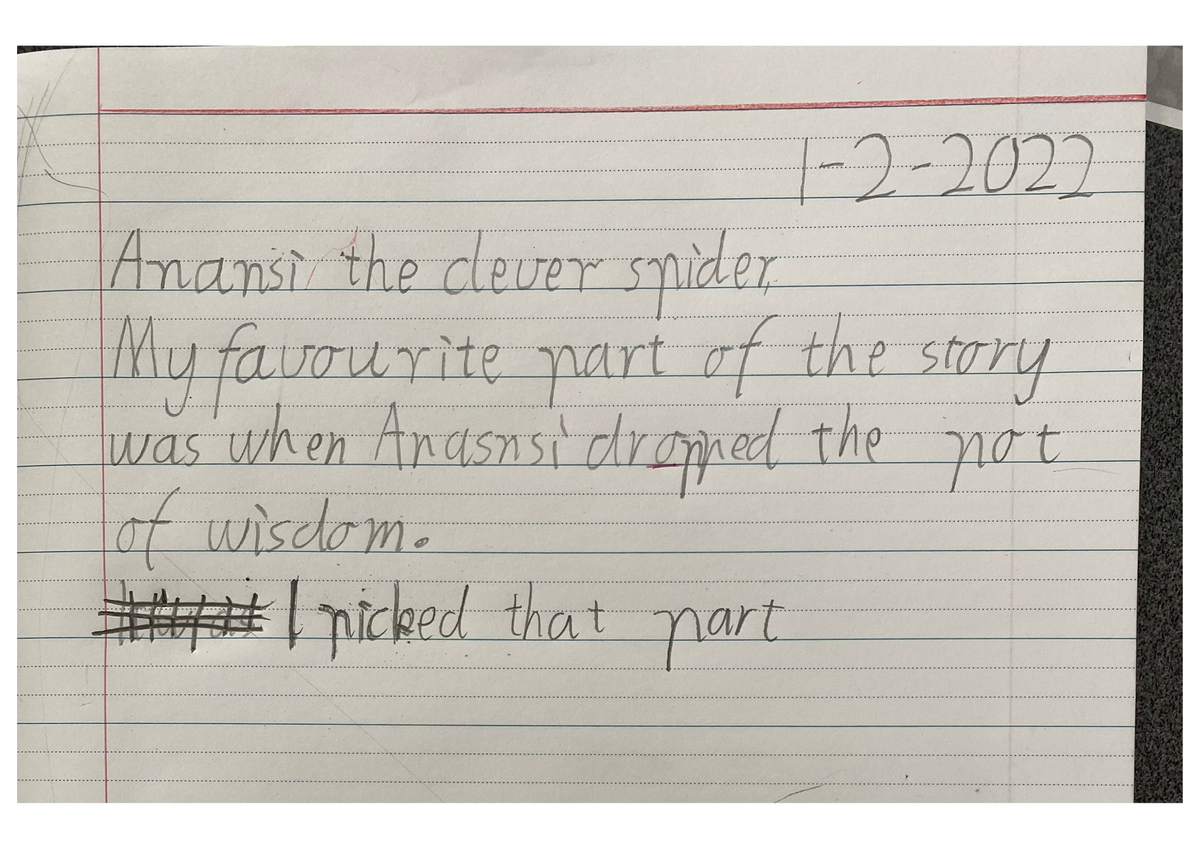 1-2-2022
Anansi the clever spider,
My favourite part of the story
was when Anasnsi dropped the pot
of wisdom.
I picked that part